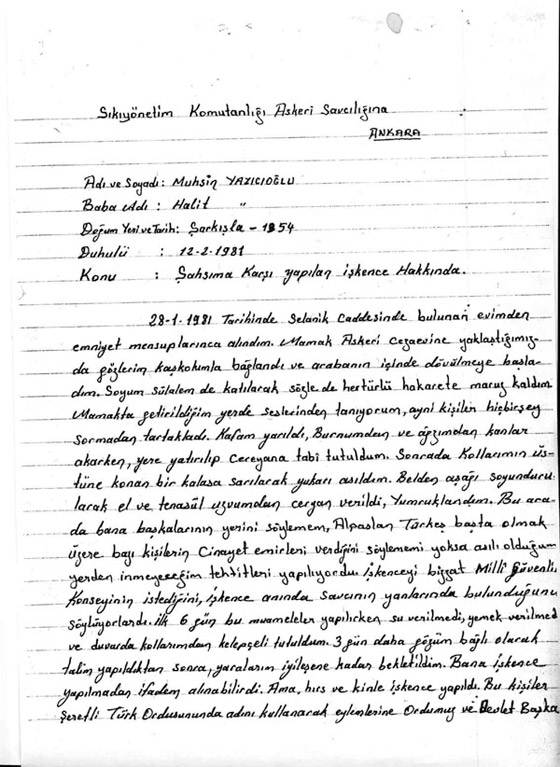 Sıkıyönetim Komutanlığı Askeri Savcılığına
ANKARA
Adı ve Soyadı: Muhsin YAZICIOĞLU
Baba Adı : Halit "
Doğum Yeri ve Tarih: Şarkışla - 1954
Duhulü : 12-2-1981
Konu : Şahsıma Karşı yapılan işkence Hakkında.
28-1-1981 Tarihinde Selanik Caddesinde bulunan evimden
emniyet mensuplarınca alındım. Mamak Askeri Cezaevine yaklaştığımız-
da gözlerim kaşkolumla bağlandı ve arabanın içinde dövülmeye başla-
dım. Soyum sülalem de katılarak sözle de hertürlü hakarete maruz kaldım
Mamakta getirildiğim yerde seslerinden tanıyorum, ayni kişiler hiçbirşey
Sormadan tartakladı. Kafam yarıldı, Burnumdan ve ağzımdan kanlar
akarken, yere yatırılıp Cereyana tabi tutuldum. Sonrada Kollarımın üs-
tüne konan bir kalasa sarılarak yukarı asıldım. Belden aşağı soyunduru
larak el ve tenasül uzvumdan ceryan verildi, Yumruklandım. Bu ara-
da bana başkalarının yerini söylemem, Alpaslan Türkeş başta olmak
üzere bazı kişilerin Cinayet emirleri verdiğini söylememi yoksa asılı olduğum
yerden inmeyeceğim tehtitleri yapılıyordu. İşkenceyi bizzat Milli Güvenlik
Konseyinin istediğini, işkence anında savcının yanlarında bulunduğunu
Söylüyorlardı. ilk 6 gün bu muameleler yapılırken su verilmedi, yemek verilmedi
ve duvarda kollarımdan kelepçeli tutuldum. 3 gün daha gözüm bağlı olarak
talim yapıldıktan sonra, yaralarım iyileşene kadar bekletildim. Bana işkence
yapılmadan ifadem alınabilirdi. Ama, hırs ve kinle işkence yapıldı. Bu kişiler
Şerefli Türk Ordusununda adını kullanarak eylemlerine Ordumuz ve Devlet Başka